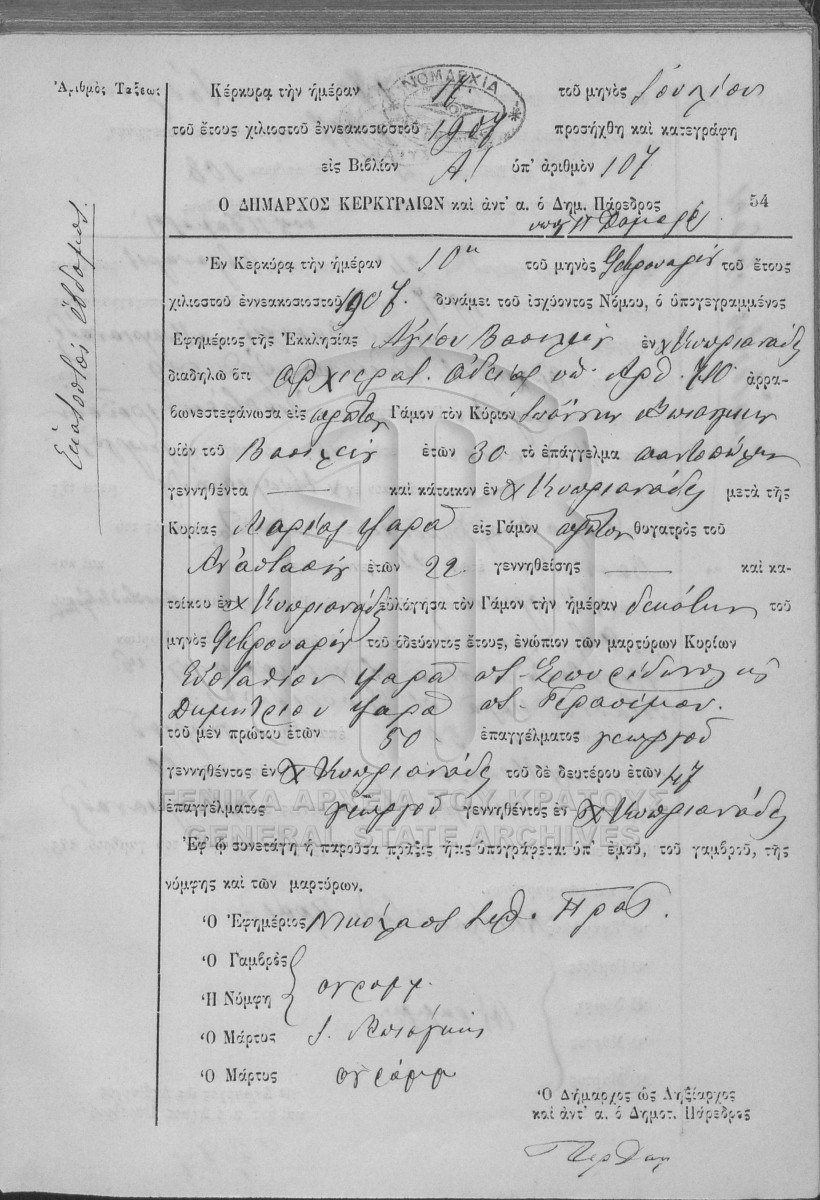 Ἀριθμὸς Τάξεως
ΝΟΜΑΡΧΙΑ
Κέρκυρα τὴν ἡμέραν τοῦ μηνὸς Ἰουλίου
τοῦ ἔτους χιλιοστοῦ ἐννεακοσιοστοῦ 1907 προσήχθη καὶ κατεγράφη
εἰς Βιβλίον Α! ὑπ' ἀριθμὸν 107
Ο ΔΗΜΑΡΧΟΣ ΚΕΡΚΥΡΑΙΩΝ καὶ ἀντ' α. ὁ Δημ. Πάρεδρος
54
Ἑκατοστὸν ἕβδομον.
Ἐν Κερκύρᾳ τὴν ἡμέραν 10ην τοῦ μηνὸς Φεβρουαρίου τοῦ ἔτους
χιλιοστοῦ ἐννεακοσιοστοῦ 1907. δυνάμει τοῦ ἰσχύοντος Νόμου, ὁ ὑπογεγραμμένος
Ἐφημέριος τῆς Ἐκκλησίας Ἁγίου Βασιλείου ἐν χ Κυπριανάδες
διαδηλῶ ὅτι ἀρχιερατ. ἀδείας ὑπ' Ἀρθ. 710. ἀρρα-
βωνεστεφάνωσα εἰς πρῶτον Γάμον τὸν Κύριον Ἰωάννην
υἱὸν τοῦ Βασιλείου ἐτῶν 30. τὸ ἐπάγγελμα παντοπώλην
γεννηθέντα — καὶ κάτοικον ἐν χ Κυπριανάδες μετὰ τῆς
Κυρίας Μαρίας Ψαρᾶ εἰς Γάμον πρῶτον θυγατρὸς τοῦ
Ἀναστασίου ἐτῶν 22. γεννηθείσης — καὶ κα-
τοίκου ἐν χ Κυπριανάδες εὐλόγησα τὸν Γάμον τὴν ἡμέραν δεκάτην τοῦ
μηνὸς Φεβρουαρίου τοῦ ὁδεύοντος ἔτους, ἐνώπιον τῶν μαρτύρων Κυρίων
Εὐσταθίου Ψαρᾶ ποτ. Σπυρίδωνος κ
Δημητρίου Ψαρᾶ ποτ. Γερασίμου.
τοῦ μὲν πρώτου ἐτῶν 50. ἐπαγγέλματος γεωργοῦ
γεννηθέντος ἐν χ Κυπριανάδες τοῦ δὲ δευτέρου ἐτῶν 47
ἐπαγγέλματος γεωργοῦ γεννηθέντος ἐν χ Κυπριανάδες
ΓΕΝΙΚΑ ΑΡΧΕΙΑ ΤΟΥ ΚΡΑΤΟΥΣ
GENERAL STATE ARCHIVES
Ἐφ' ᾧ συνετάγη ἡ παροῦσα πρᾶξις ἥτις ὑπογράφεται ὑπ' ἐμοῦ, τοῦ γαμβροῦ, τῆς
νύμφης καὶ τῶν μαρτύρων.
Ὁ Ἐφημέριος Νικόλαος
Ὁ Γαμβρὸς
Ἡ Νύμφη ἀγράμμ.
Ὁ Μάρτυς
Ὁ Μάρτυς ἀγράμμ
Ὁ Δήμαρχος ὡς Ληξίαρχος
καὶ ἀντ' α. ὁ Δημοτ. Πάρεδρος